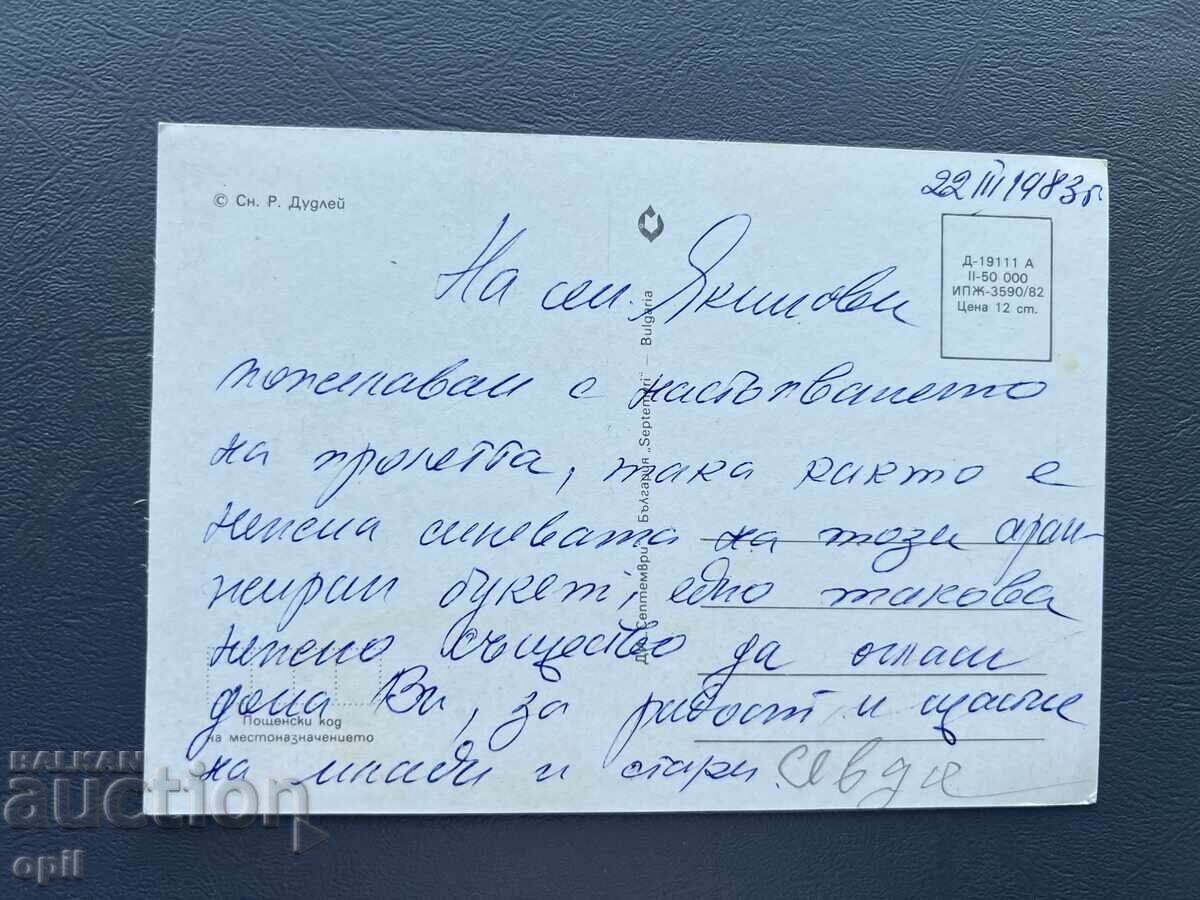 22 III 1983 г.
© Сн. Р. Дудлей
Д-19111 А
II-50 000
ИПЖ-3590/82
Цена 12 ст.
На сем. Якимови
пожелавам с настъпването
на пролетта, така както е
нежна синевата на този аран-
жиран букет, едно такова
нежно същество да огласи
дома Ви, за радост и щастие
на млади и стари.
Севда
ДИ „Септември" България „Septemvri" — Bulgaria
Пощенски код
на местоназначението
BALKAN
auction
opil